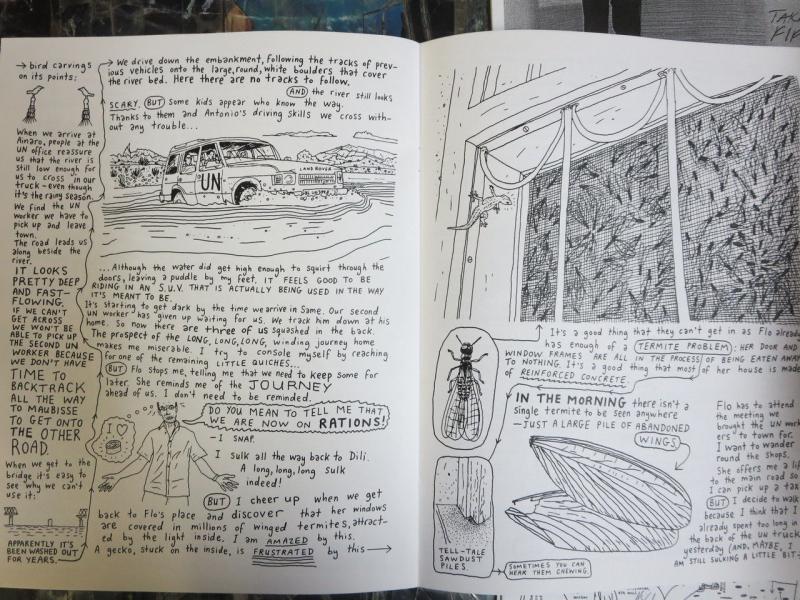 → bird carvings
on its points:
When we arrive at
Ainaro, people at the
UN office reassure
us that the river is
still low enough for
us to cross in our
truck - even though
it's the rainy season.
We find the UN
worker we have to
pick up and leave
town.
The road leads us
along beside the
river.
IT LOOKS
PRETTY DEEP
AND FAST-
FLOWING.
IF WE CAN'T
GET ACROSS
WE WON'T BE
ABLE TO PICK UP
THE SECOND UN
WORKER BECAUSE
WE DON'T HAVE
TIME TO
BACKTRACK
ALL THE WAY
TO MAUBISSE
TO GET ONTO
THE OTHER
ROAD.
When we get to the
bridge it's easy to
see why we can't
use it:
APPARENTLY IT'S
BEEN WASHED OUT
FOR YEARS.
→ We drive down the embankment, following the tracks of prev-
ious vehicles onto the large, round, white boulders that cover
the river bed. Here there are no tracks to follow.
AND the river still looks
SCARY. BUT some kids appear who know the way.
Thanks to them and Antonio's driving skills we cross with-
out any trouble...
UN
LAND ROVER
...Although the water did get high enough to squirt through the
doors, leaving a puddle by my feet. IT FEELS GOOD TO BE
RIDING IN AN S.U.V. THAT IS ACTUALLY BEING USED IN THE WAY
IT'S MEANT TO BE.
It's starting to get dark by the time we arrive in Same. Our second
UN worker has given up waiting for us. We track him down at his
home. So now there are three of us squashed in the back.
The prospect of the LONG, LONG, LONG, winding journey home
makes me miserable. I try to console myself by reaching
for one of the remaining LITTLE QUICHES...
BUT Flo stops me, telling me that we need to keep some for
later. She reminds me of the JOURNEY
ahead of us. I don't need to be reminded.
I
DO YOU MEAN TO TELL ME THAT
WE ARE NOW ON RATIONS!
- I SNAP.
I sulk all the way back to Dili.
A long, long, long sulk
indeed!
BUT I cheer up when we get
back to Flo's place and discover that her windows
are covered in millions of winged termites, attract-
ed by the light inside. I am AMAZED by this.
A gecko, stuck on the inside, is FRUSTRATED by this →
It's a good thing that they can't get in as Flo already
has enough of a TERMITE PROBLEM: HER DOOR AND
WINDOW FRAMES ARE ALL IN THE PROCESS OF BEING EATEN AWAY
TO NOTHING. It's a good thing that most of her house is made
of REINFORCED CONCRETE.
IN THE MORNING there isn't a
single termite to be seen anywhere
- JUST A LARGE PILE OF ABANDONED
WINGS.
TELL-TALE
SAWDUST
PILES.
SOMETIMES YOU CAN
HEAR THEM CHEWING.
Flo has to attend
the meeting we
brought the UN work
ers to town for.
I want to wander
round the shops.
She offers me a
to the main road so
I can pick up a
BUT I decide to walk
because I think I
already spent too long in
the back of the UN truck
yesterday (AND, MAYBE, I
AM STILL SULKING A LITTLE BIT-